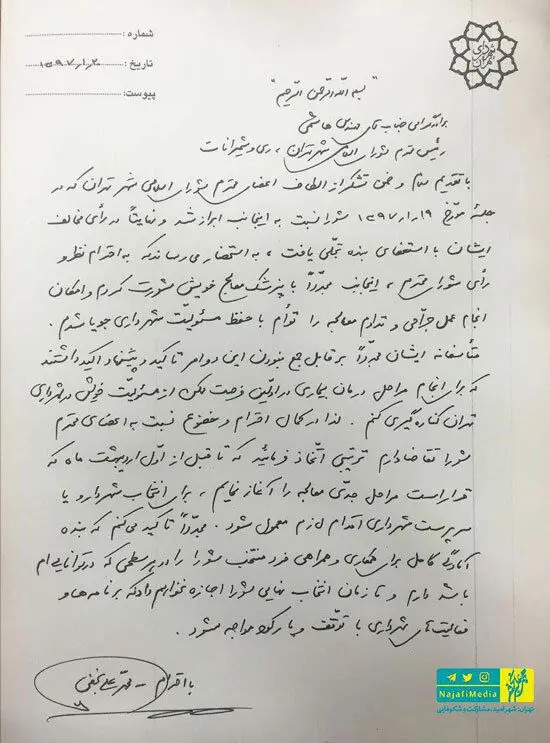 شماره :
تاریخ : ۱۳۹۷/۱/۲۰
پیوست :
شهرداری تهران
"بسم الله الرحمن الرحیم"
برادر گرامی جناب آقای مهندس هاشمی
رئیس محترم شورای اسلامی شهر تهران، ری و شمیرانات
با تقدیم سلام و ضمن تشکر از الطاف اعضای محترم شورای اسلامی شهر تهران که در
جلسهٔ مورّخ ۱۳۹۷/۱/۱۹ شورا نسبت به اینجانب ابراز شد و نهایتاً در رأی مخالف
ایشان با استعفای بنده تجلّی یافت، به استحضار می رساند که به احترام نظر و
رأی شورای محترم، اینجانب مجدّداً با پزشک معالج خویش مشورت کردم و امکان
انجام عمل جرّاحی و تداوم معالجه را توأم با حفظ مسئولیّت شهرداری جویا شدم.
متأسفانه ایشان مجدّداً بر قابل جمع نبودن این دو امر تاکید و پیشنهاد اکید داشتند
که برای انجام مراحل درمان بیماری در اوّلین فرصت ممکن از مسئولیّت خویش در شهرداری
تهران کناره گیری کنم. لذا در کمال احترام و خضوع نسبت به اعضای محترم
شورا تقاضا دارم ترتیبی اتّخاذ فرمائید که تا قبل از اوّل اردیبهشت ماه که
قرار است مراحل جدّی معالجه را آغاز نمایم، برای انتخاب شهردار و یا
سرپرست شهرداری اقدام لازم معمول شود. مجدّداً تاکید می کنم که بنده
آمادگی کامل برای همکاری و همراهی فرد منتخب شورا را در هر سطحی که در توانایی ام
باشد دارم و تا زمان انتخاب نهایی شورا اجازه نخواهم داد که برنامه ها و
فعالیت های شهرداری با توقّف و یا رکود مواجه شود.
با احترام - محمّد علی نجفی
NajafiMedia
تهران؛ شهر امید، مشارکت و شکوفایی